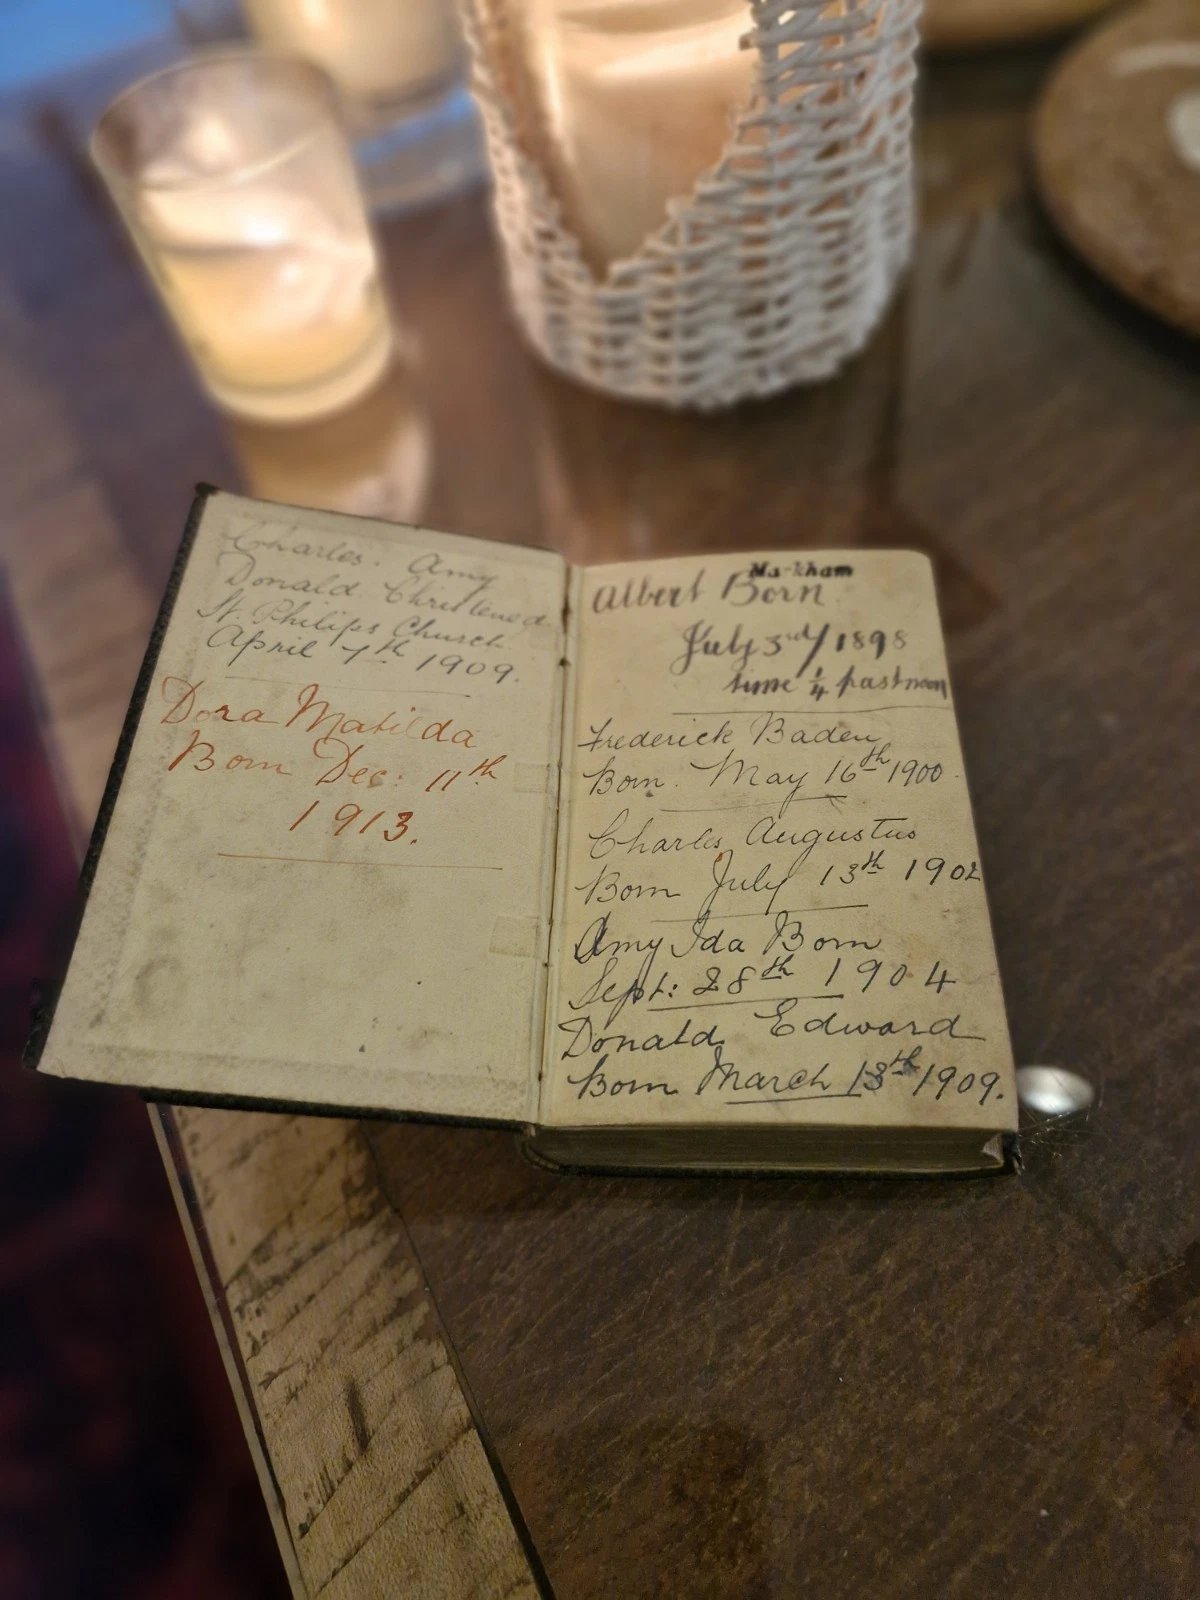 Charles. Amy
Donald. Christened
St. Philips Church.
April 7th 1909.
Dora Matilda
Born Dec: 11th
1913.
Markham
Albert Born
July 3rd/1898
time 1/4 past noon
Frederick Baden
Born. May 16th 1900.
Charles Augustus
Born July 13th 1902
Amy Ida Born
Sept: 28th 1904
Donald Edward
Born March 13th 1909.